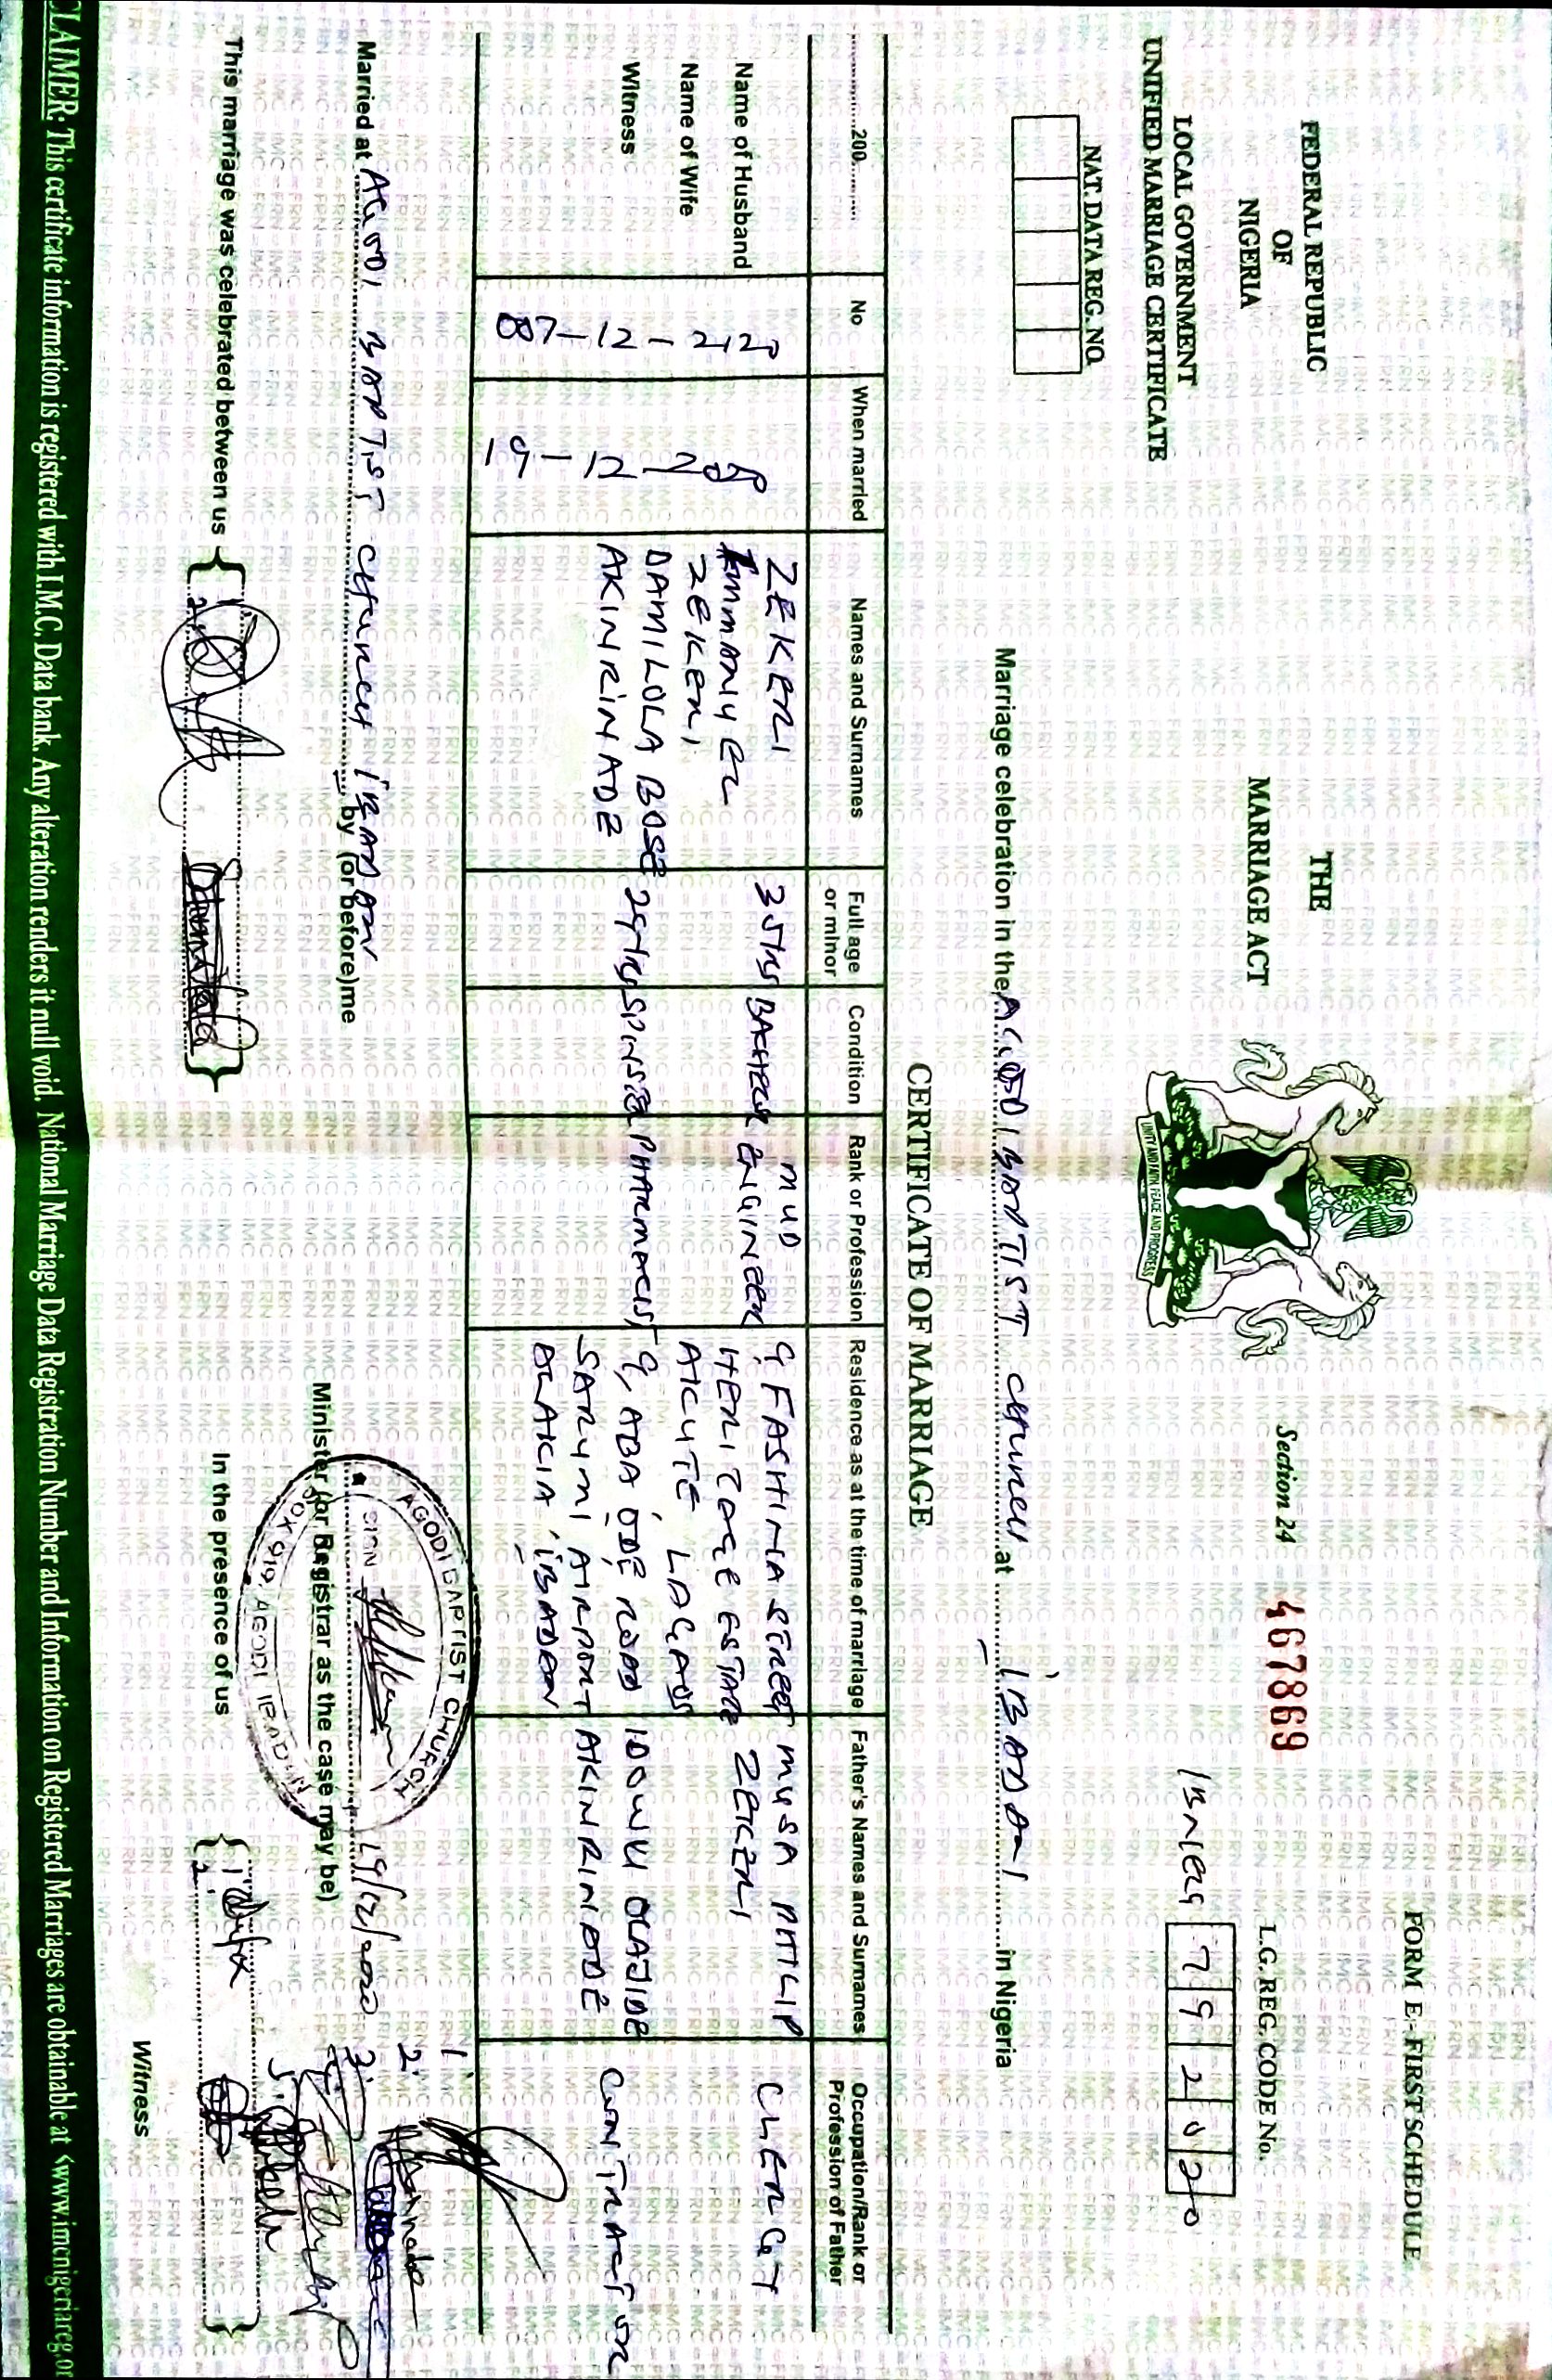 FORM E:- FIRST SCHEDULE
FEDERAL REPUBLIC
OF
NIGERIA
THE
MARRIAGE ACT
Section 24
467869
L.G. REG. CODE No.
7 9 2 0 2 0
LOCAL GOVERNMENT
UNIFIED MARRIAGE CERTIFICATE
NAT. DATA REG. NO.
UNITY AND FAITH, PEACE AND PROGRESS
Marriage celebration in the AGODI BAPTIST CHURCH at IBADAN in Nigeria
CERTIFICATE OF MARRIAGE
200
No
When married
Names and Surnames
Full age or minor
Condition
Rank or Profession
Residence as at the time of marriage
Father's Names and Surnames
Occupation/Rank or Profession of Father
Name of Husband
ZEKERI
EMMANUEL
35yrs
BACHELOR
MUD
ENGINEER
9, FASHINA STREET
HERITAGE ESTATE
AKUTE LAGOS
MUSA PHILIP
ZEKERI
CLERGY
Name of Wife
Witness
007-12-2020
19-12-2020
ZEKERI
DAMILOLA BOSE
AKINRINADE
29yrs
SPINSTER
PHARMACIST
9, ABA ODE ROAD
SARUMI AIRPORT
ALAKIA, IBADAN
IDOWU OLAJIDE
AKINRINADE
CONTRACTOR
Married at AGODI BAPTIST CHURCH IBADAN by (or before) me
AGODI BAPTIST CHURCH
SIGN
BOX 919, AGODI IBADAN
19/12/2020
Minister (or Registrar as the case may be)
1.
2.
3.
This marriage was celebrated between us
1.
2.
In the presence of us
1.
2.
Witness
CLAIMER: This certificate information is registered with I.M.C. Data bank. Any alteration renders it null void. National Marriage Data Registration Number and Information on Registered Marriages are obtainable at <www.imcnigeriareg.or